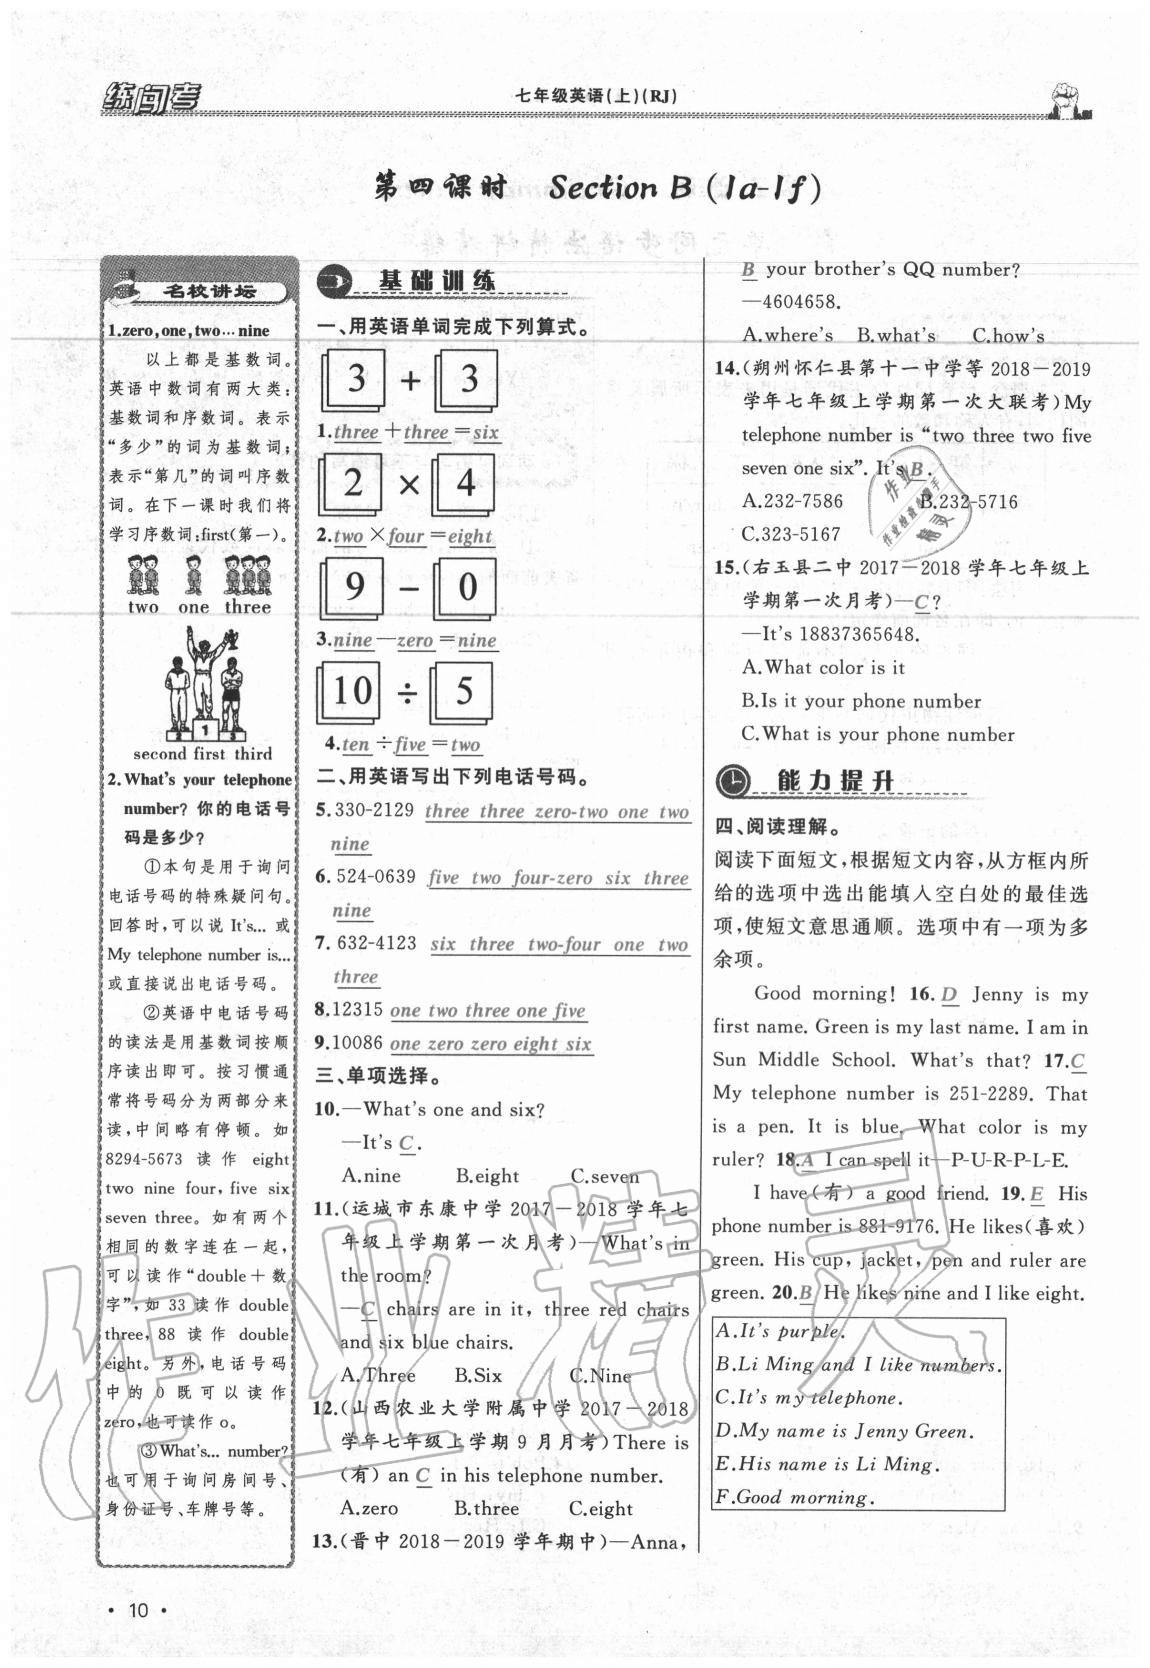 练闯考
七年级英语(上)(RJ)
第四课时 Section B (1a-1f)
名校讲坛
1.zero,one,two…nine
以上都是基数词。
英语中数词有两大类:
基数词和序数词。表示
“多少”的词为基数词;
表示“第几”的词叫序数
词。在下一课时我们将
学习序数词:first(第一)。
two one three
2 1 3
second first third
2.What's your telephone
number? 你的电话号
码是多少?
①本句是用于询问
电话号码的特殊疑问句。
回答时,可以说 It's… 或
My telephone number is…
或直接说出电话号码。
②英语中电话号码
的读法是用基数词按顺
序读出即可。按习惯通
常将号码分为两部分来
读,中间略有停顿。如
8294-5673 读作 eight
two nine four, five six
seven three。如有两个
相同的数字连在一起,
可以读作“double＋数
字”,如 33 读作 double
three,88 读作 double
eight。另外,电话号码
中的 0 既可以读作
zero,也可读作 o。
③What's… number?
也可用于询问房间号、
身份证号、车牌号等。
基础训练
一、用英语单词完成下列算式。
3 + 3
1.three＋three＝six
2 × 4
2.two×four＝eight
9 − 0
3.nine—zero＝nine
10 ÷ 5
4.ten÷five＝two
二、用英语写出下列电话号码。
5.330-2129 three three zero-two one two
nine
6.524-0639 five two four-zero six three
nine
7.632-4123 six three two-four one two
three
8.12315 one two three one five
9.10086 one zero zero eight six
三、单项选择。
10.—What's one and six?
—It's C .
A.nine B.eight C.seven
11.(运城市东康中学 2017－2018 学年七
年级上学期第一次月考)—What's in
the room?
—C chairs are in it, three red chairs
and six blue chairs.
A.Three B.Six C.Nine
12.(山西农业大学附属中学 2017－2018
学年七年级上学期 9 月月考)There is
(有) an C in his telephone number.
A.zero B.three C.eight
13.(晋中 2018－2019 学年期中)—Anna,
B your brother's QQ number?
—4604658.
A.where's B.what's C.how's
14.(朔州怀仁县第十一中学等 2018－2019
学年七年级上学期第一次大联考)My
telephone number is “two three two five
seven one six”. It's B .
A.232-7586 B.232-5716
C.323-5167
15.(右玉县二中 2017－2018 学年七年级上
学期第一次月考)—C?
—It's 18837365648.
A.What color is it
B.Is it your phone number
C.What is your phone number
能力提升
四、阅读理解。
阅读下面短文,根据短文内容,从方框内所
给的选项中选出能填入空白处的最佳选
项,使短文意思通顺。选项中有一项为多
余项。
Good morning! 16. D Jenny is my
first name. Green is my last name. I am in
Sun Middle School. What's that? 17.C
My telephone number is 251-2289. That
is a pen. It is blue. What color is my
ruler? 18.A I can spell it—P-U-R-P-L-E.
I have(有) a good friend. 19. E His
phone number is 881-9176. He likes(喜欢)
green. His cup, jacket, pen and ruler are
green. 20.B He likes nine and I like eight.
A.It's purple.
B.Li Ming and I like numbers.
C.It's my telephone.
D.My name is Jenny Green.
E.His name is Li Ming.
F.Good morning.
作业精灵
· 10 ·